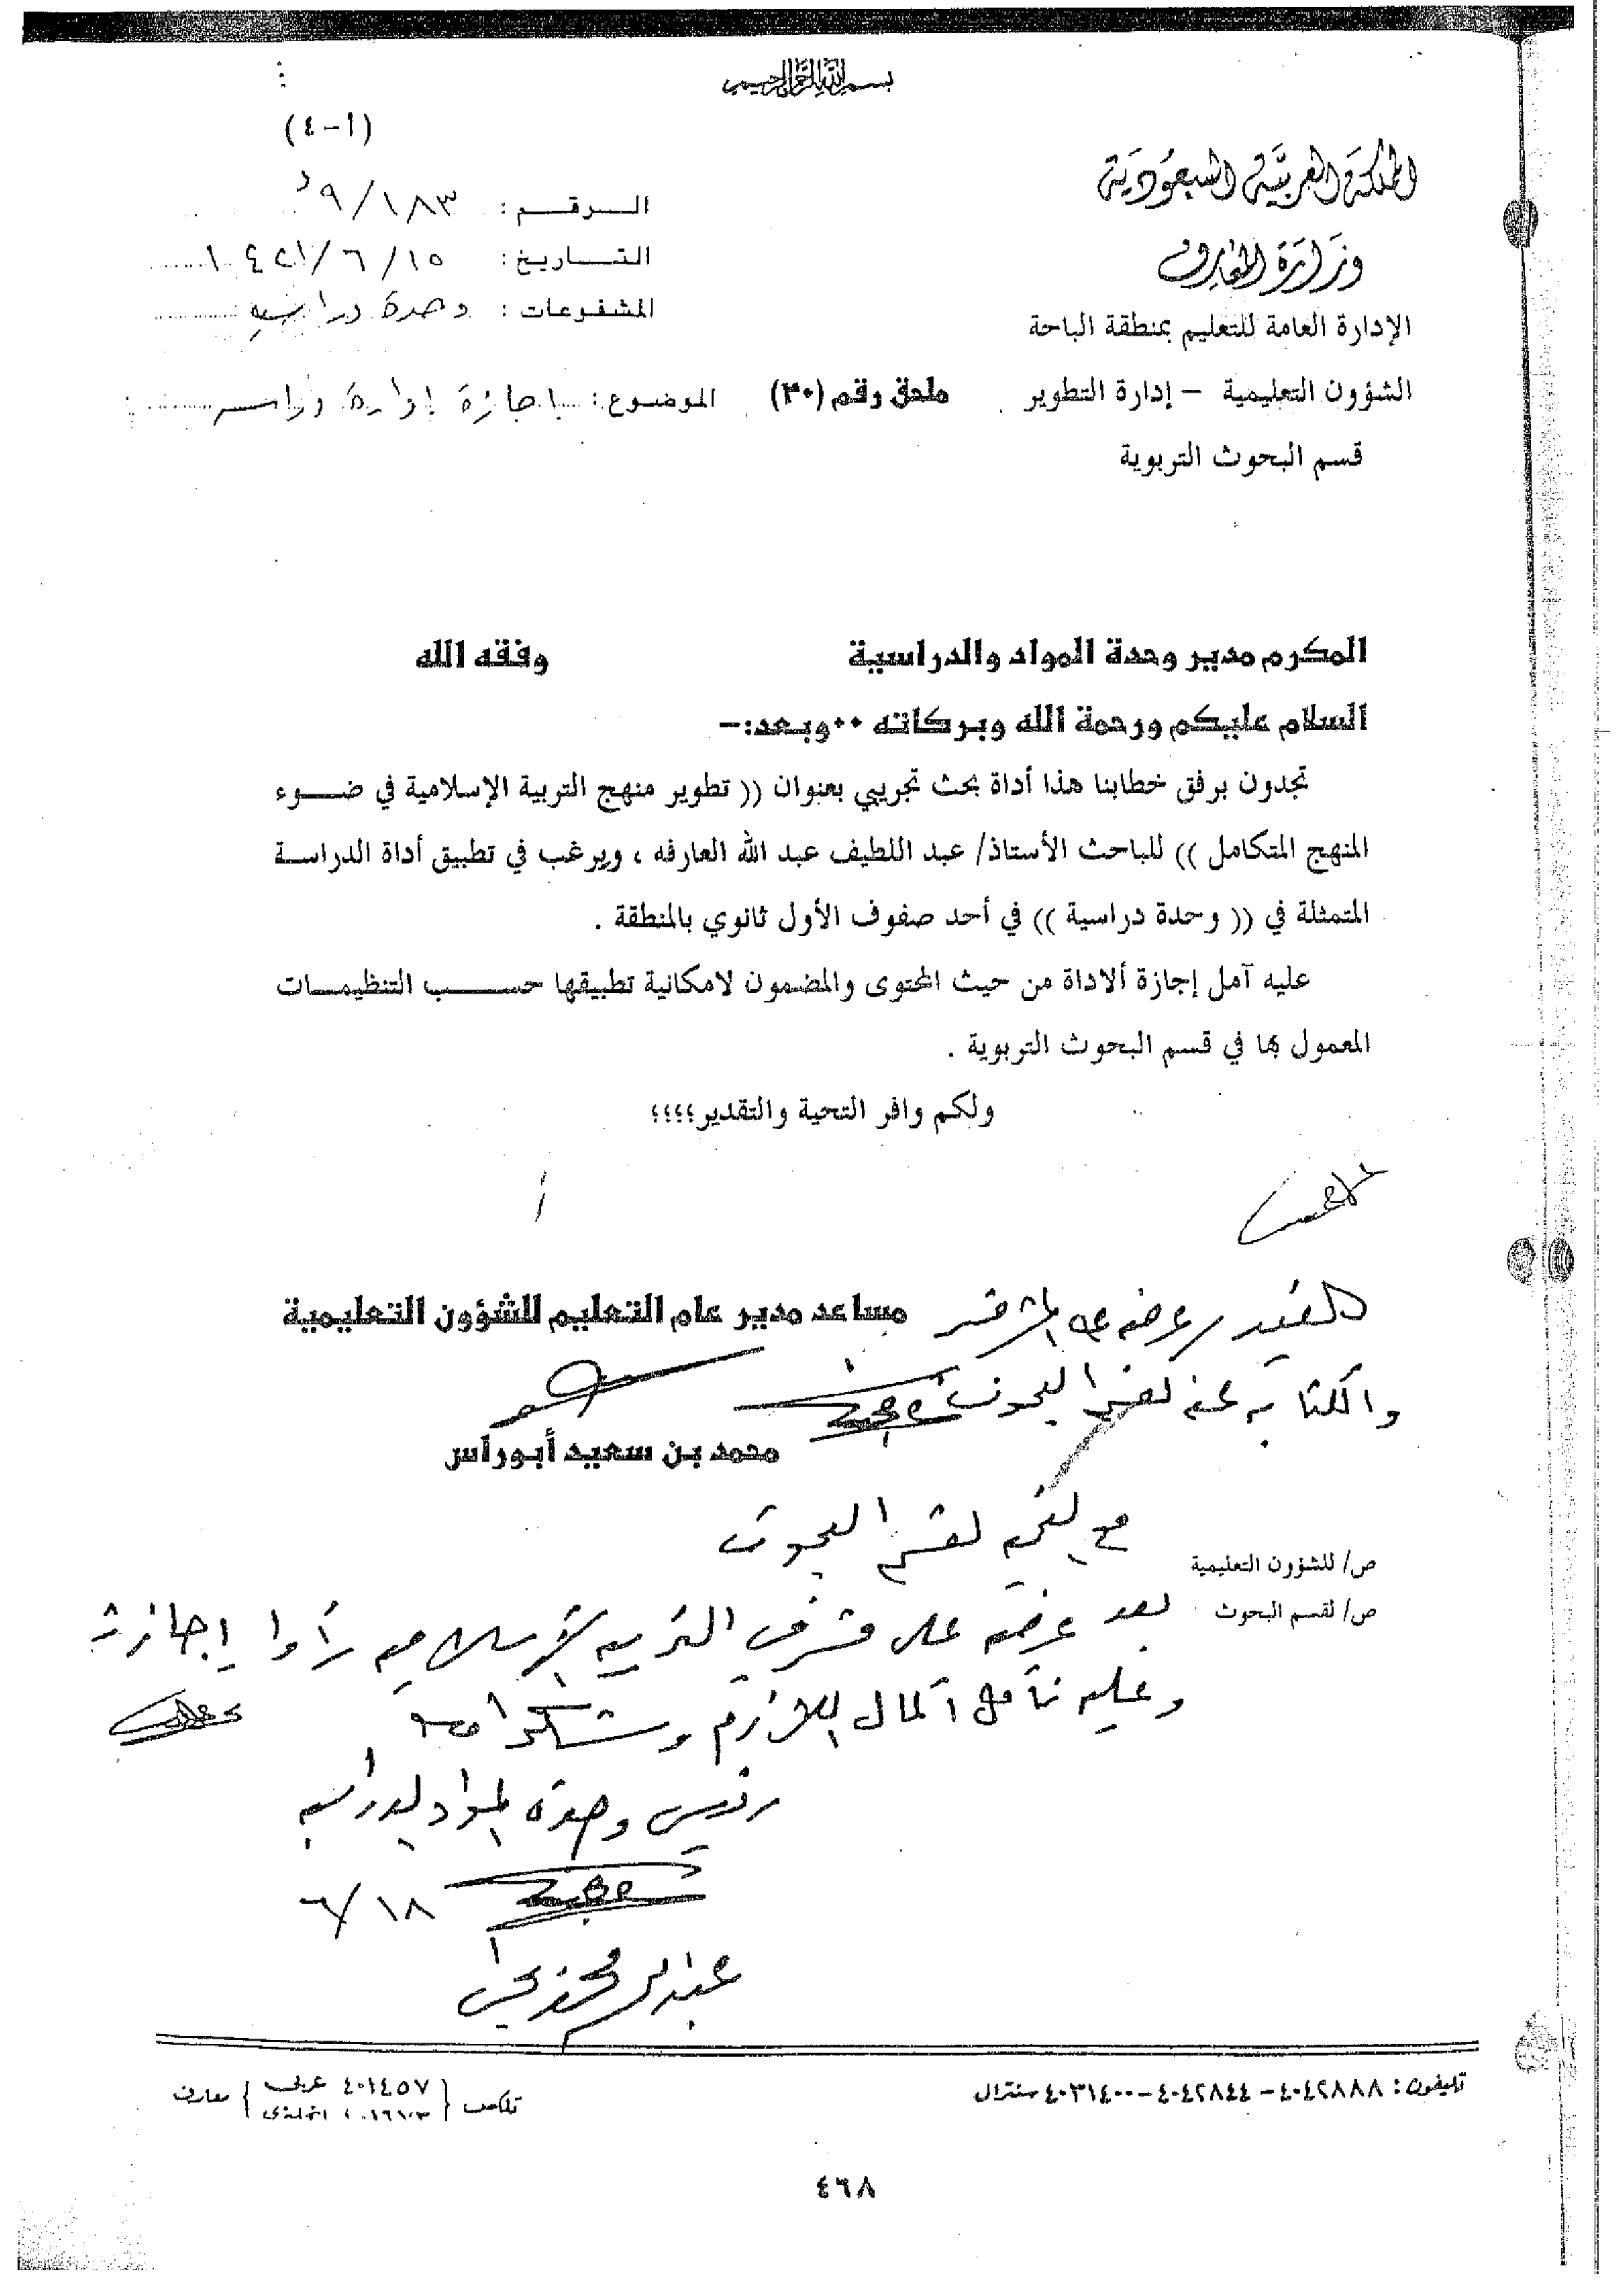 بسم الله الرحمن الرحيم
(أ-٤)
المملكة العربية السعودية
وزارة المعارف
الإدارة العامة للتعليم بمنطقة الباحة
الشؤون التعليمية – إدارة التطوير
قسم البحوث التربوية
الـرقـم : ٩/١٨٣
التـاريخ : ١٤٢١/٦/١٥
المشفوعات : وحدة دراسية
ملحق رقم (٣٠)
الموضوع : إجازة
المكرم مدير وحدة المواد والدراسية وفقه الله
السلام عليكم ورحمة الله وبركاته ٠٠وبعد:–
تجدون برفق خطابنا هذا أداة بحث تجريبي بعنوان (( تطوير منهج التربية الإسلامية في ضـوء
المنهج المتكامل )) للباحث الأستاذ/ عبد اللطيف عبد الله العارفه ، ويرغب في تطبيق أداة الدراسـة
المتمثلة في (( وحدة دراسية )) في أحد صفوف الأول ثانوي بالمنطقة .
عليه آمل إجازة ألاداة من حيث المحتوى والمضمون لامكانية تطبيقها حسـب التنظيمـات
المعمول بها في قسم البحوث التربوية .
ولكم وافر التحية والتقدير؛؛؛؛
مساعد مدير عام التعليم للشؤون التعليمية
محمد بن سعيد أبوراس
والكتابة عنه لقسم البحوث
لقسم البحوث
ص/ للشؤون التعليمية
ص/ لقسم البحوث
بعد عرضه على مشرفي التربية الإسلامية رأوا إجازته
وعليه نأمل اكمال اللازم وشكرا
رئيس وحدة المواد الدراسية
٦/١٨
تليفون : ٤٠٤٢٨٨٨ – ٤٠٤٢٨٤٤ – ٤٠٣١٤٠٠ سنترال
تلكس ٤٠١٤٥٧ عربي
انجليزي
معارف
٤٦٨